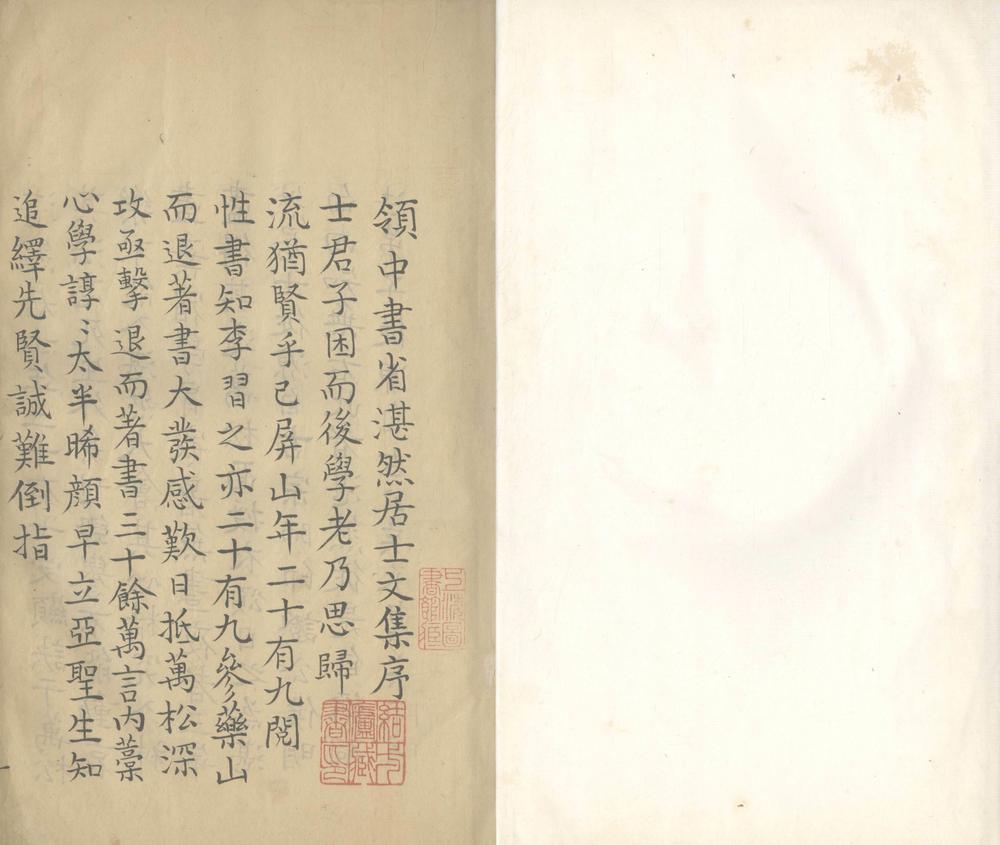 領中書省湛然居士文集序
士君子困而後學老乃思歸
流猶賢乎己屏山年二十有九閱
性書知李習之亦二十有九參藥山
而退著書大發感歎日抵萬松深
攻亟擊退而著書三十餘萬言内藁
心學諄〻太半晞顔早立亞聖生知
追繹先賢誠難倒指